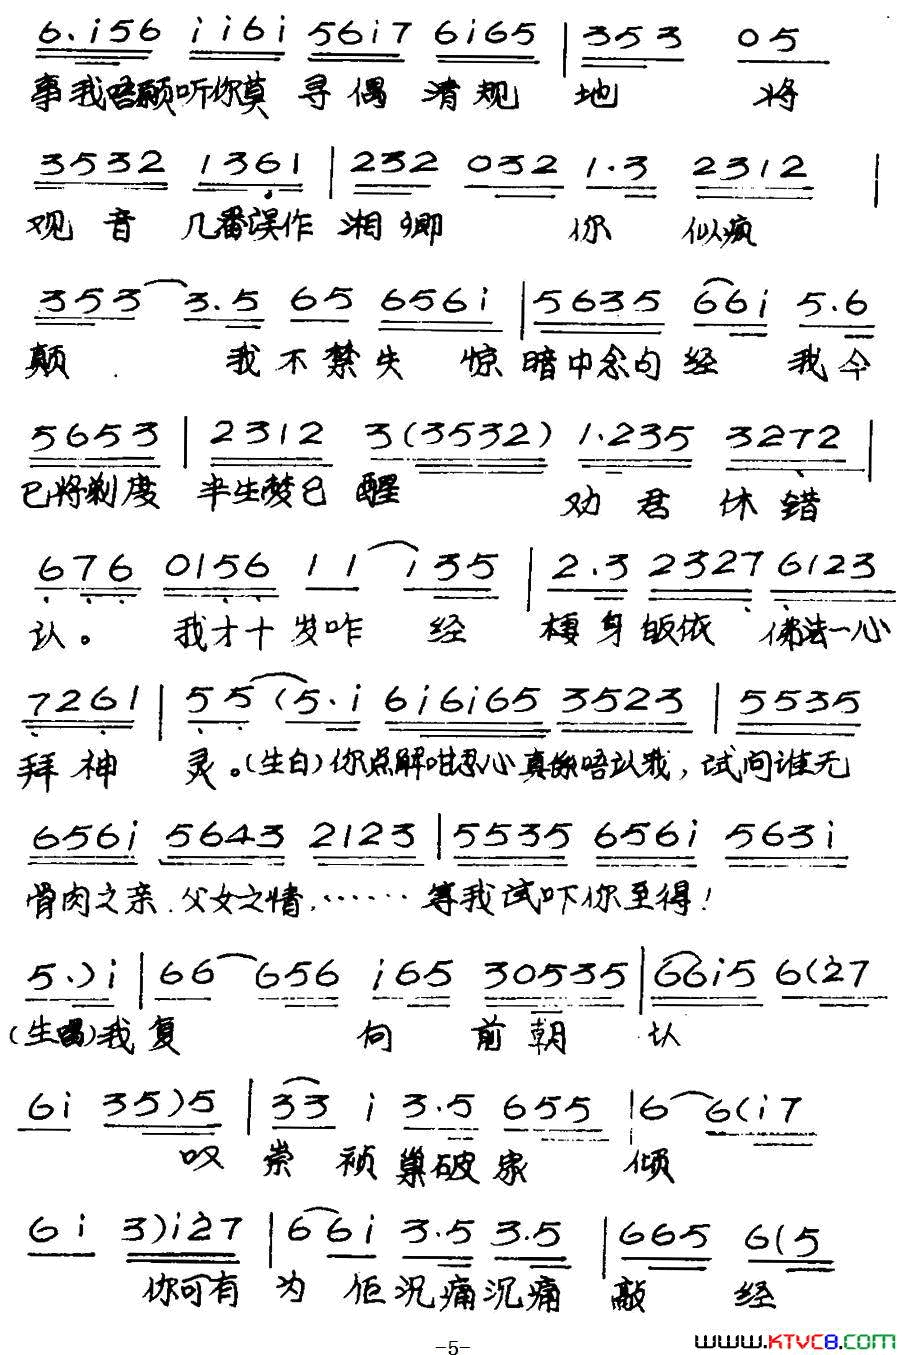 6.i56 ii6i 56i7 6i65 | 353 05
事我唔愿听你莫 寻 偶 清 规 地 将
3532 1361 | 232 032 1.3 2312 |
观 音 几番误作 湘 卿 你 似疯
353 3.5 65 656i | 5635 66i 5.6
颠 . 我 不 禁 失 惊 暗中念句 经 我 今
5653 | 2312 3(3532) 1.235 3272 |
已将剃度 半生梦已 醒 劝 君 休 错
676 0156 11 135 | 2.3 2327 6123
认。 我才十 岁咋 经 棲 身 皈依 佛法一心
7261 | 55(5.i 6i6i65 3523 | 5535
拜 神 灵。(生白)你点解咁忍心真係唔认我，试问谁无
656i 5643 2123 | 5535 656i 563i
骨肉之亲.父女之情，⋯⋯等我试吓你至得！
5.)i | 66 656 i65 30535 | 66i5 6(27
(生唱)我 复 向 前 朝 认
6i 35)5 | 33 i 3.5 655 | 6 6(i7
叹 崇 祯 巢破 家 倾
6i 3)i27 | 66i 3.5 3.5 | 665 6(5
你可有 为 佢 沉痛沉痛 敲 经
-5-
www.KTVC8.com